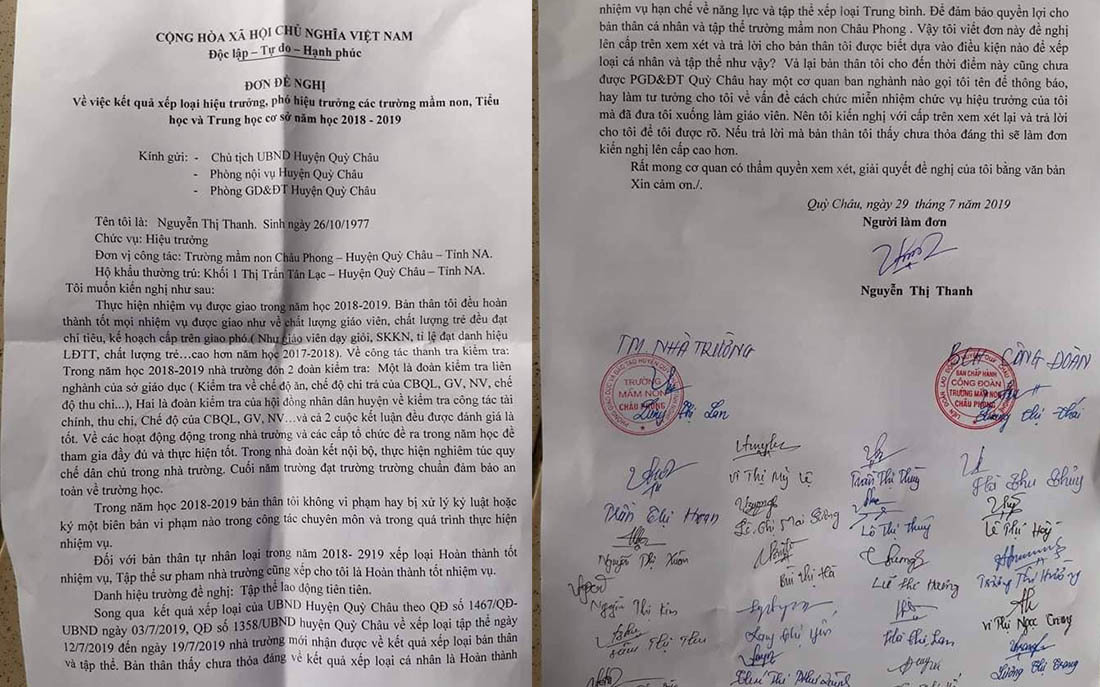 CỘNG HÒA XÃ HỘI CHỦ NGHĨA VIỆT NAM
Độc lập – Tự do – Hạnh phúc
ĐƠN ĐỀ NGHỊ
Về việc kết quả xếp loại hiệu trưởng, phó hiệu trưởng các trường mầm non, Tiểu
học và Trung học cơ sở năm học 2018 - 2019
Kính gửi: - Chủ tịch UBND Huyện Quỳ Châu
- Phòng nội vụ Huyện Quỳ Châu
- Phòng GD&ĐT Huyện Quỳ Châu
Tên tôi là: Nguyễn Thị Thanh. Sinh ngày 26/10/1977
Chức vụ: Hiệu trưởng
Đơn vị công tác: Trường mầm non Châu Phong – Huyện Quỳ Châu – Tỉnh NA.
Hộ khẩu thường trú: Khối 1 Thị Trấn Tân Lạc – Huyện Quỳ Châu – Tỉnh NA.
Tôi muốn kiến nghị như sau:
Thực hiện nhiệm vụ được giao trong năm học 2018-2019. Bản thân tôi đều hoàn
thành tốt mọi nhiệm vụ được giao như về chất lượng giáo viên, chất lượng trẻ đều đạt
chỉ tiêu, kế hoạch cấp trên giao phó.( Như giáo viên dạy giỏi, SKKN, tỉ lệ đạt danh hiệu
LĐTT, chất lượng trẻ…cao hơn năm học 2017-2018). Về công tác thanh tra kiểm tra:
Trong năm học 2018-2019 nhà trường đón 2 đoàn kiểm tra: Một là đoàn kiểm tra liên
nghành của sở giáo dục ( Kiểm tra về chế độ ăn, chế độ chi trả của CBQL, GV, NV, chế
độ thu chi...), Hai là đoàn kiểm tra của hội đồng nhân dân huyện về kiểm tra công tác tài
chính, thu chi, Chế độ của CBQL, GV, NV…và cả 2 cuộc kết luận đều được đánh giá là
tốt. Về các hoạt động động trong nhà trường và các cấp tổ chức đề ra trong năm học đề
tham gia đầy đủ và thực hiện tốt. Trong nhà đoàn kết nội bộ, thực hiện nghiêm túc quy
chế dân chủ trong nhà trường. Cuối năm trường đạt trường trường chuẩn đảm bảo an
toàn về trường học.
Trong năm học 2018-2019 bản thân tôi không vi phạm hay bị xử lý kỷ luật hoặc
ký một biên bản vi phạm nào trong công tác chuyên môn và trong quá trình thực hiện
nhiệm vụ.
Đối với bản thân tự nhân loại trong năm 2018- 2919 xếp loại Hoàn thành tốt
nhiệm vụ, Tập thể sư phạm nhà trường cũng xếp cho tôi là Hoàn thành tốt nhiệm vụ.
Danh hiệu trường đề nghị: Tập thể lao động tiên tiên.
Song qua kết quả xếp loại của UBND Huyện Quỳ Châu theo QĐ số 1467/QĐ-
UBND ngày 03/7/2019, QĐ số 1358/UBND huyện Quỳ Châu về xếp loại tập thể ngày
12/7/2019 đến ngày 19/7/2019 nhà trường mới nhận được về kết quả xếp loại bản thân
và tập thể. Bản thân thấy chưa thỏa đáng về kết quả xếp loại cá nhân là Hoàn thành
nhiệm vụ hạn chế về năng lực và tập thể xếp loại Trung bình. Để đảm bảo quyền lợi cho
bản thân cá nhân và tập thể trường mầm non Châu Phong . Vậy tôi viết đơn này đề nghị
lên cấp trên xem xét và trả lời cho bản thân tôi được biết dựa vào điều kiện nào để xếp
loại cá nhân và tập thể như vậy? Và lại bản thân tôi cho đến thời điểm này cũng chưa
được PGD&ĐT Quỳ Châu hay một cơ quan ban nghành nào gọi tôi tên để thông báo,
hay làm tư tưởng cho tôi về vấn đề cách chức miễn nhiệm chức vụ hiệu trưởng của tôi
mà đã đưa tôi xuống làm giáo viên. Nên tôi kiến nghị với cấp trên xem xét lại và trả lời
cho tôi để tôi được rõ. Nếu trả lời mà bản thân tôi thấy chưa thỏa đáng thì sẽ làm đơn
kiến nghị lên cấp cao hơn.
Rất mong cơ quan có thẩm quyền xem xét, giải quyết đề nghị của tôi bằng văn bản
Xin cảm ơn./.
Quỳ Châu, ngày 29 tháng 7 năm 2019
Người làm đơn
Nguyễn Thị Thanh
TM NHÀ TRƯỜNG
BCH CÔNG ĐOÀN
TRƯỜNG
MẦM NON
CHÂU PHONG
Thị Lan
BAN CHẤP HÀNH
CÔNG ĐOÀN
TRƯỜNG MẦM NON
CHÂU PHONG
Thị Thái
Vi Thị Mỹ Lệ
Trần Thị Thùy
Hà Thu Thủy
Trần Thị Hoan
Lê Thị Mai Sương
Lô Thị Thủy
Lê Thị Hoa
Nguyễn Thị Xuân
Bùi Thị Hà
Thị Hương
Trương Thị Hường
Nguyễn Thị Kim
Vi Thị Ngọc
Thị Thu
Thị Yến
Thị Lan
Lương Thị Trang